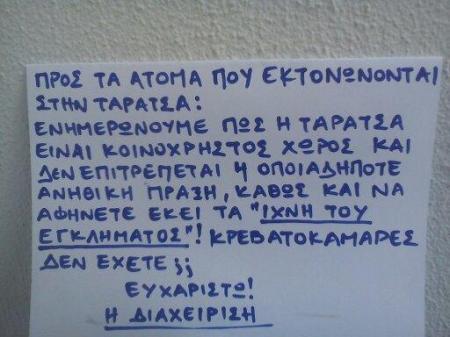 ΠΡΟΣ ΤΑ ΑΤΟΜΑ ΠΟΥ ΕΚΤΟΝΩΝΟΝΤΑΙ
ΣΤΗΝ ΤΑΡΑΤΣΑ:
ΕΝΗΜΕΡΩΝΟΥΜΕ ΠΩΣ Η ΤΑΡΑΤΣΑ
ΕΙΝΑΙ ΚΟΙΝΟΧΡΗΣΤΟΣ ΧΩΡΟΣ ΚΑΙ
ΔΕΝ ΕΠΙΤΡΕΠΕΤΑΙ Η ΟΠΟΙΑΔΗΠΟΤΕ
ΑΝΗΘΙΚΗ ΠΡΑΞΗ, ΚΑΘΩΣ ΚΑΙ ΝΑ
ΑΦΗΝΕΤΕ ΕΚΕΙ ΤΑ "ΙΧΝΗ ΤΟΥ
ΕΓΚΛΗΜΑΤΟΣ"! ΚΡΕΒΑΤΟΚΑΜΑΡΕΣ
ΔΕΝ ΕΧΕΤΕ;;
ΕΥΧΑΡΙΣΤΩ!
Η ΔΙΑΧΕΙΡΙΣΗ